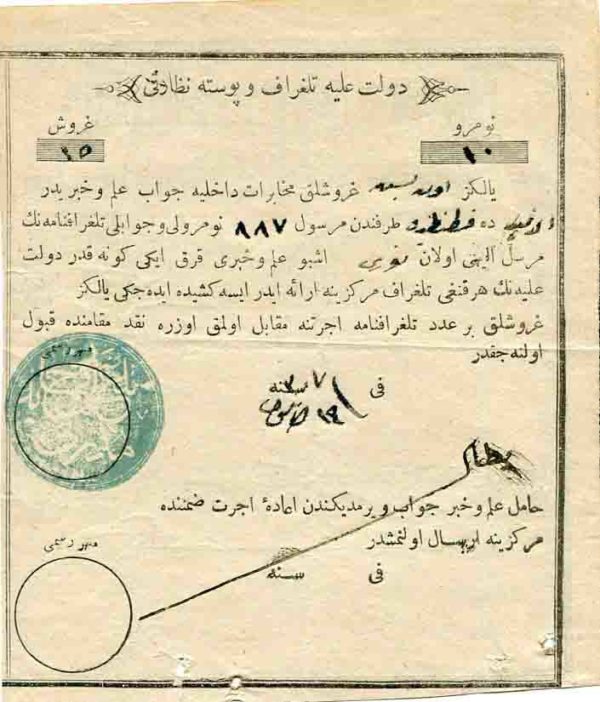 دولت علیه تلغراف و پوسته نظارتی
نومرو غروش
١٠ ١٥
یالکز غروشلق مخابرات داخلیه جواب علم وخبریدر
ده طرفندن مرسول ٨٨٧ نومرولی وجوابلی تلغرافنامه‌نك
مرسل الیهی اولان اشبو علم وخبری قرق ایکی کونه قدر دولت
علیه‌نك هرقنغی تلغراف مرکزینه ارائه ایدر ایسه کشیده ایده‌جکی یالکز
غروشلق بر عدد تلغرافنامه اجرتنه مقابل اولمق اوزره نقد مقامنده قبول
اولنه‌جقدر
مهر رسمی
فی سنه
حامل علم وخبر جواب ویرمدیکندن اعادهٔ اجرت ضمننده
مرکزینه ارسال اولنمشدر
مهر رسمی
فی سنه